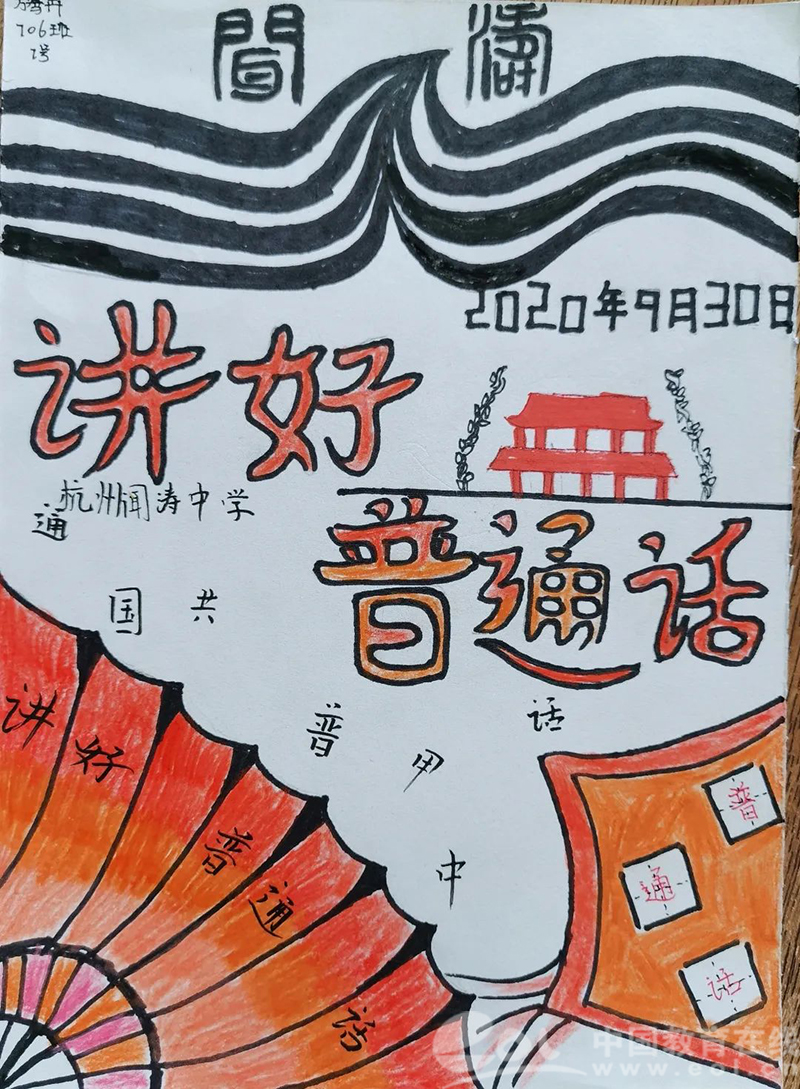 706班
1号
聞濤
2020年9月30日
讲好
杭州闻涛中学
普通话
通
国 共
普 甲 话
中
讲好普通话
普
通
话
中国教育在线
www.eol.cn